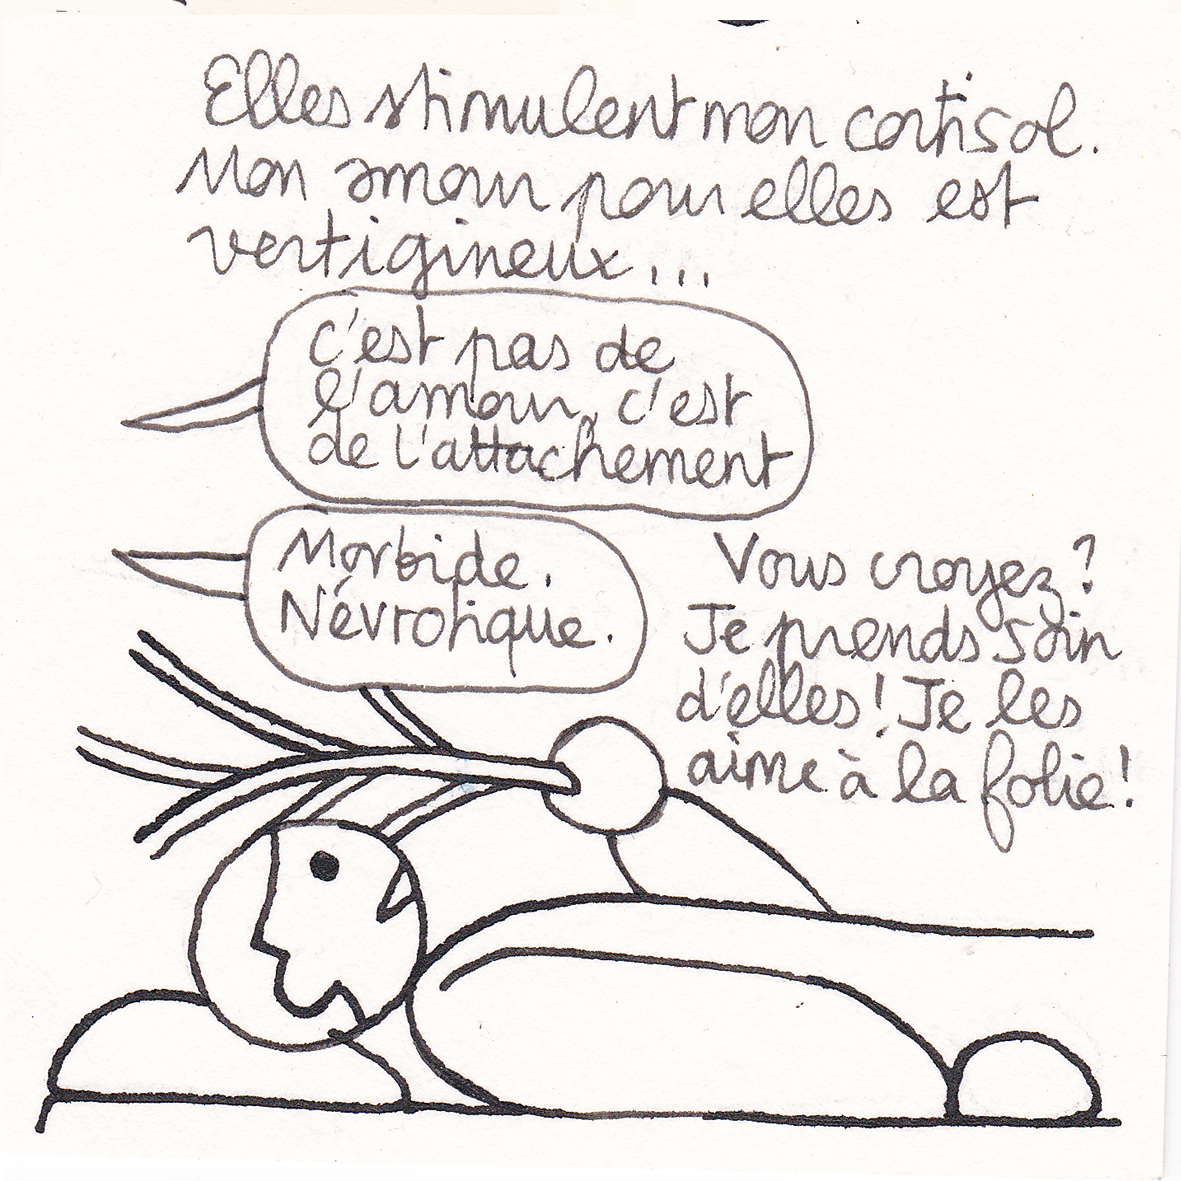 Elles stimulent mon cortisol.
Mon amour pour elles est
vertigineux...
c'est pas de
l'amour, c'est
de l'attachement
Morbide.
Névrotique.
Vous croyez?
Je prends soin
d'elles! Je les
aime à la folie!